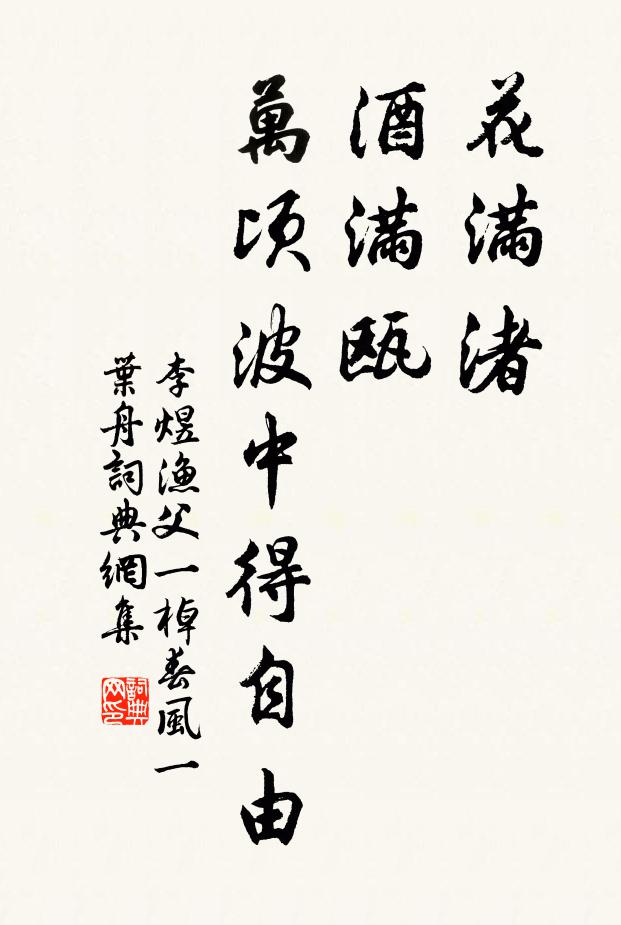 花满渚
酒满瓯
萬頃波中得自由
李煜漁父一棹春風一
葉舟詞典網集
詞典网印